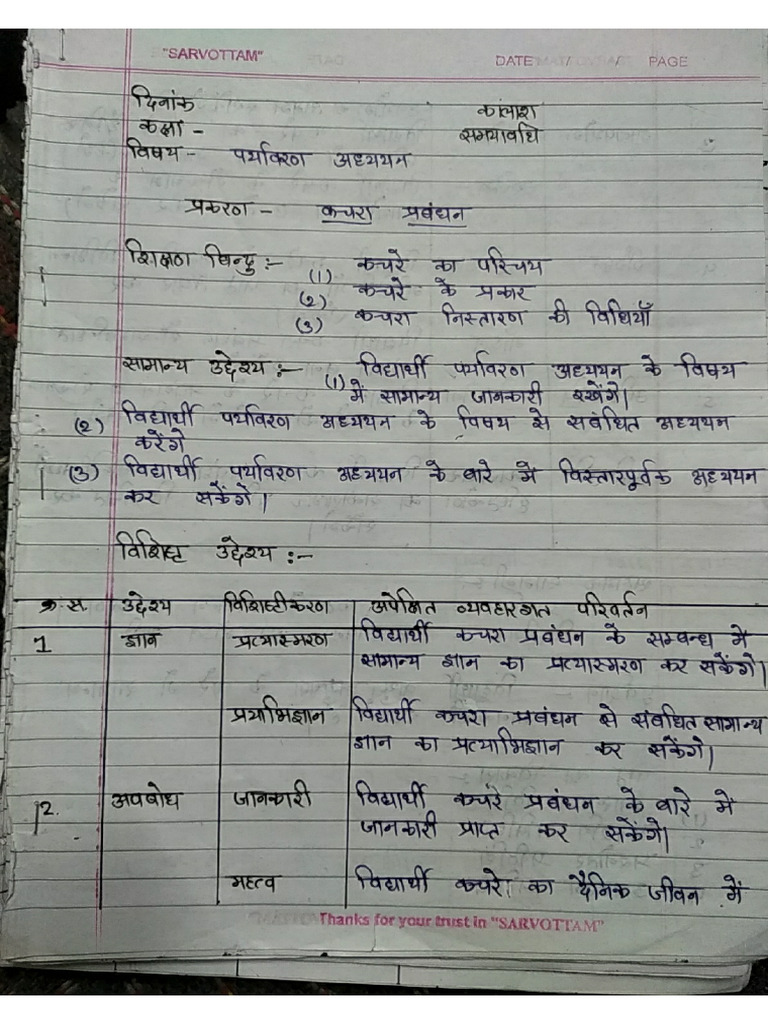 "SARVOTTAM" DATE / / PAGE
दिनांक कालांश
कक्षा - समयावधि
विषय - पर्यावरण अध्ययन
प्रकरण - कचरा प्रबंधन
शिक्षण बिन्दु :- (1) कचरे का परिचय
(2) कचरे के प्रकार
(3) कचरा निस्तारण की विधियाँ
सामान्य उद्देश्य :- (1) विद्यार्थी पर्यावरण अध्ययन के विषय
में सामान्य जानकारी रखेंगे।
(2) विद्यार्थी पर्यावरण अध्ययन के विषय से सबंधित अध्ययन
करेंगे
(3) विद्यार्थी पर्यावरण अध्ययन के बारे में विस्तारपूर्वक अध्ययन
कर सकेंगे।
विशिष्ट उद्देश्य :-
क्र.स. उद्देश्य विशिष्टीकरण अपेक्षित व्यवहारगत परिवर्तन
1 ज्ञान प्रत्यास्मरण विद्यार्थी कचरा प्रबंधन के सम्बन्ध में
सामान्य ज्ञान का प्रत्यास्मरण कर सकेंगे।
प्रयाभिज्ञान विद्यार्थी कचरा प्रबंधन से संबंधित सामान्य
ज्ञान का प्रत्याभिज्ञान कर सकेंगे।
2. अवबोध जानकारी विद्यार्थी कचरे प्रबंधन के बारे में
जानकारी प्राप्त कर सकेंगे।
महत्व विद्यार्थी कचरे का दैनिक जीवन में
Thanks for your trust in "SARVOTTAM"